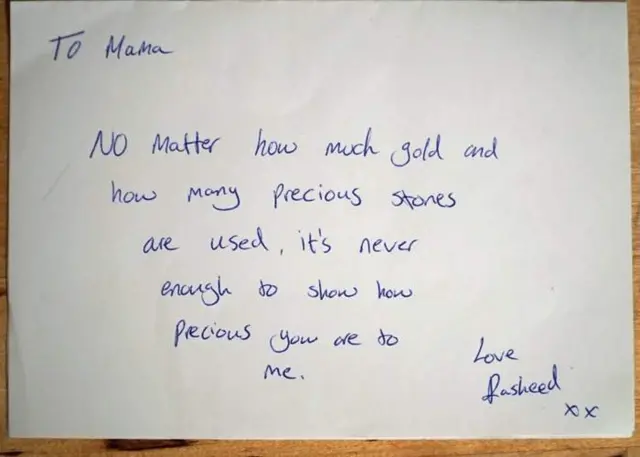 To Mama
No Matter how much gold and
how many precious stones
are used, it's never
enough to show how
precious you are to
me.
Love
Rasheed
xx